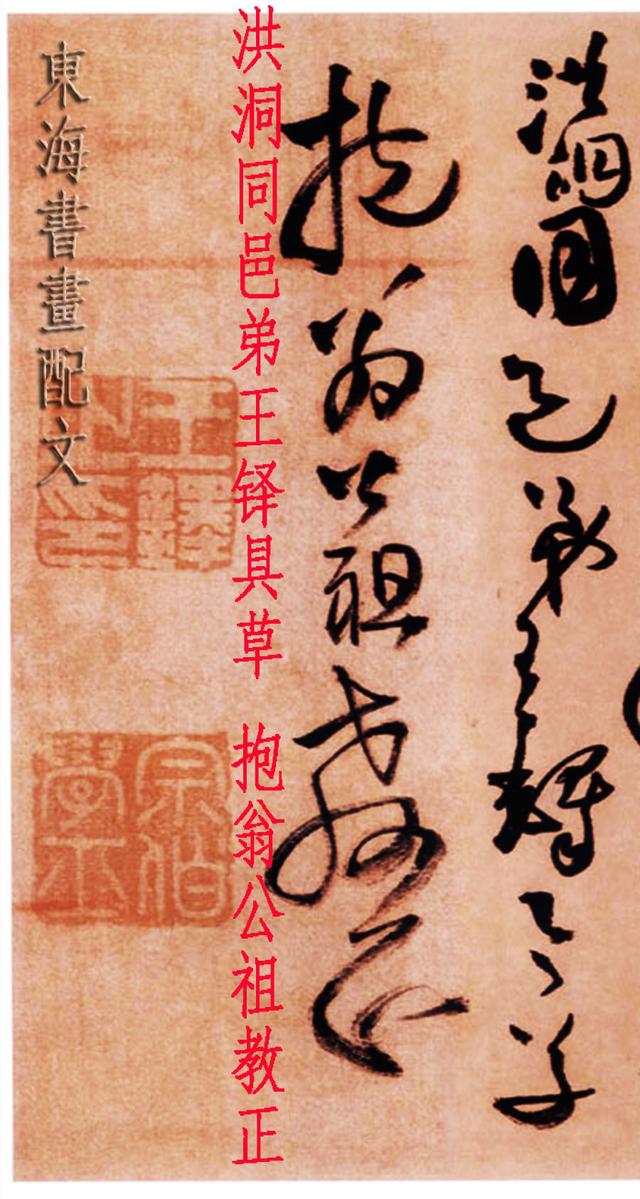 洪洞同邑弟王鐸具草
抱翁公祖教正
洪洞同邑弟王铎具草 抱翁公祖教正
東海書畫配文
王鐸之印
宗伯學士